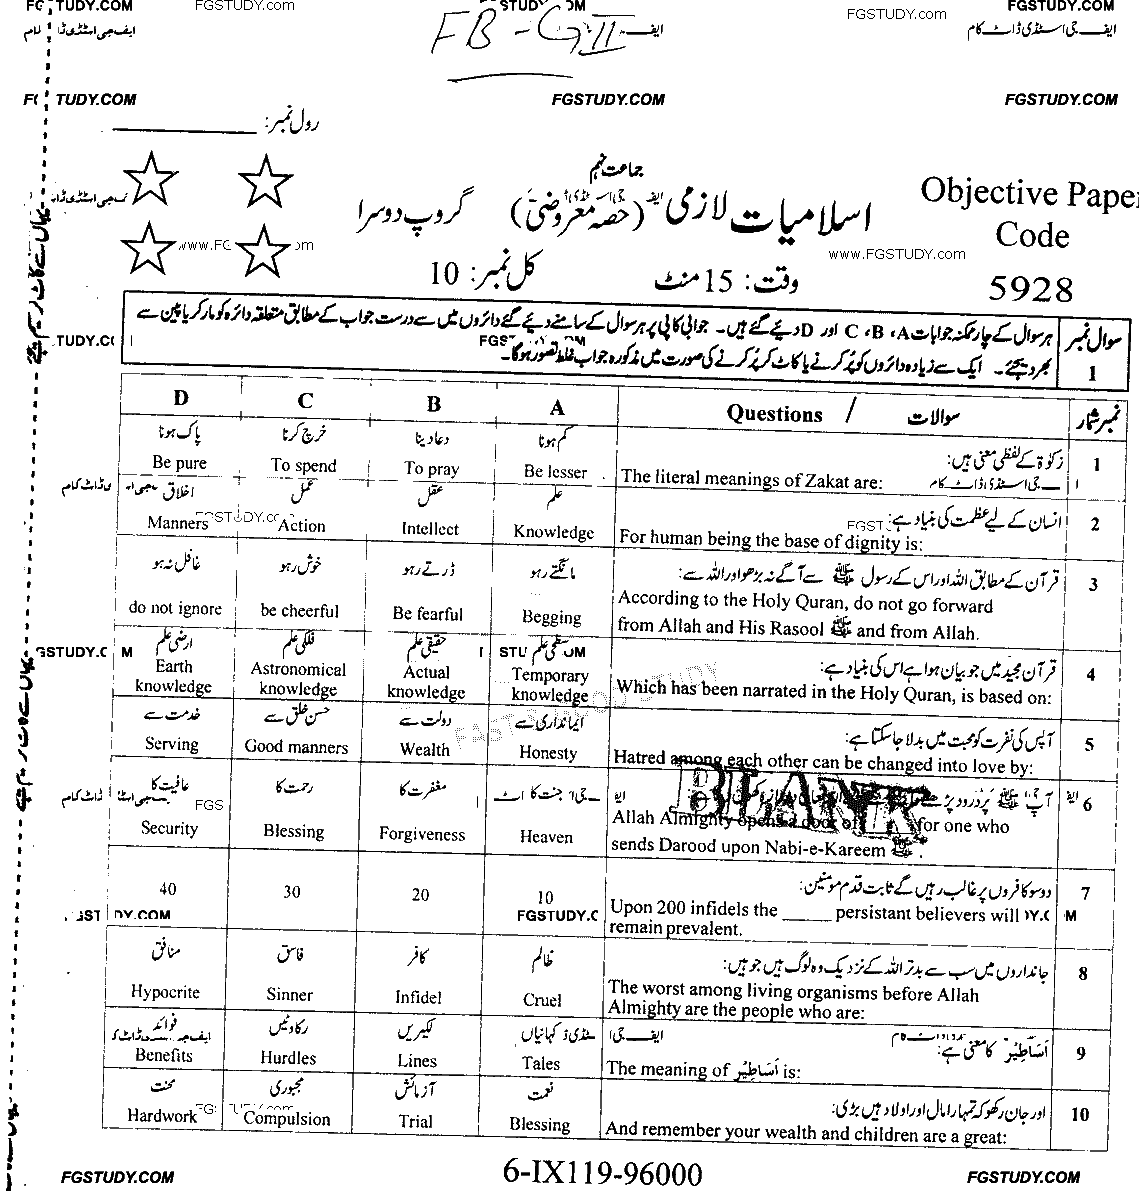 FGSTUDY.COM
FB-G II
رول نمبر:
جماعت نہم
اسلامیات لازمی (حصہ معروضی) گروپ دوسرا
Objective Paper
Code
5928
وقت: 15 منٹ
کل نمبر: 10
www.FGSTUDY.com
سوال نمبر 1
ہر سوال کے چار ممکنہ جوابات A، B، C اور D دیئے گئے ہیں۔ جوابی کاپی پر ہر سوال کے سامنے دیئے گئے دائروں میں سے درست جواب کے مطابق متعلقہ دائرہ کو مارکر یا پین سے
بھر دیجئے۔ ایک سے زیادہ دائروں کو پُر کرنے یا کاٹ کر پُر کرنے کی صورت میں مذکورہ جواب غلط تصور ہوگا۔
نمبر شمار
سوالات / Questions
A B C D
1
زکوٰۃ کے لفظی معنی ہیں:
The literal meanings of Zakat are:
کم ہونا دعا دینا خرچ کرنا پاک ہونا
Be lesser To pray To spend Be pure
2
انسان کے لیے عظمت کی بنیاد ہے:
For human being the base of dignity is:
علم عقل عمل اخلاق
Knowledge Intellect Action Manners
3
قرآن کے مطابق اللہ اور اس کے رسول ﷺ سے آگے نہ بڑھو اور اللہ سے:
According to the Holy Quran, do not go forward
from Allah and His Rasool ﷺ and from Allah.
مانگتے رہو ڈرتے رہو خوش رہو غافل نہ ہو
Begging Be fearful be cheerful do not ignore
4
قرآن مجید میں جو بیان ہوا ہے اس کی بنیاد ہے:
Which has been narrated in the Holy Quran, is based on:
سطحی علم حقیقی علم فلکی علم ارضی علم
Temporary knowledge Actual knowledge Astronomical knowledge Earth knowledge
5
آپس کی نفرت کو محبت میں بدلا جا سکتا ہے:
Hatred among each other can be changed into love by:
ایمانداری سے دولت سے حسن خلق سے خدمت سے
Honesty Wealth Good manners Serving
6
آپ ﷺ پر درود پڑھنے
BLANK
Allah Almighty opens a door of for one who
sends Darood upon Nabi-e-Kareem ﷺ.
جنت کا مغفرت کا رحمت کا عافیت کا
Heaven Forgiveness Blessing Security
7
دو سو کافروں پر غالب رہیں گے ثابت قدم مومنین:
Upon 200 infidels the _____ persistant believers will
remain prevalent.
10 20 30 40
8
جانداروں میں سب سے بدتر اللہ کے نزدیک وہ لوگ ہیں جو ہیں:
The worst among living organisms before Allah
Almighty are the people who are:
ظالم کافر فاسق منافق
Cruel Infidel Sinner Hypocrite
9
اَسَاطِیْرُ کا معنی ہے:
The meaning of اَسَاطِیْرُ is:
کہانیاں لکیریں رکاوٹیں فوائد
Tales Lines Hurdles Benefits
10
اور جان رکھو کہ تمہارا مال اور اولاد ہیں بڑی:
And remember your wealth and children are a great:
نعمت آزمائش مجبوری محنت
Blessing Trial Compulsion Hardwork
6-IX119-96000
FGSTUDY.COM
FGSTUDY.COM